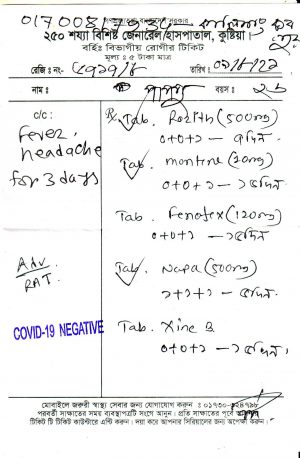 গণপ্রজাতন্ত্রী বাংলাদেশ সরকার
২৫০ শয্যা বিশিষ্ট জেনারেল হাসপাতাল, কুষ্টিয়া।
বহিঃ বিভাগীয় রোগীর টিকিট
মূল্য : ৫ টাকা মাত্র
রেজি নং-
তারিখ :
নাম :
বয়স : ২৬
c/c:
Fever,
headache
for 3 days
Adv
RAT.
COVID-19 NEGATIVE
Rx
Tab. (500mg)
০+০+১ —
Tab. montene (10mg)
০+০+১ — ১৫দিন
Tab. Fenofex (120mg)
০+০+১ — ১৫দিন
Tab. Napa (500mg)
১+১+১ — ৫দিন
Tab. Xinc B
০+০+১ — ১৫দিন
মোবাইলে জরুরী স্বাস্থ্য সেবার জন্য যোগাযোগ করুন :
পরবর্তী সাক্ষাতের সময় ব্যবস্থাপত্রটি সংগে আনুন। প্রতি সাক্ষাতের পূর্বে
টিকিট টি টিকিট কাউন্টারে এন্ট্রি করুন। দয়া করে আপনার সিরিয়ালের জন্য অপেক্ষা করুন।